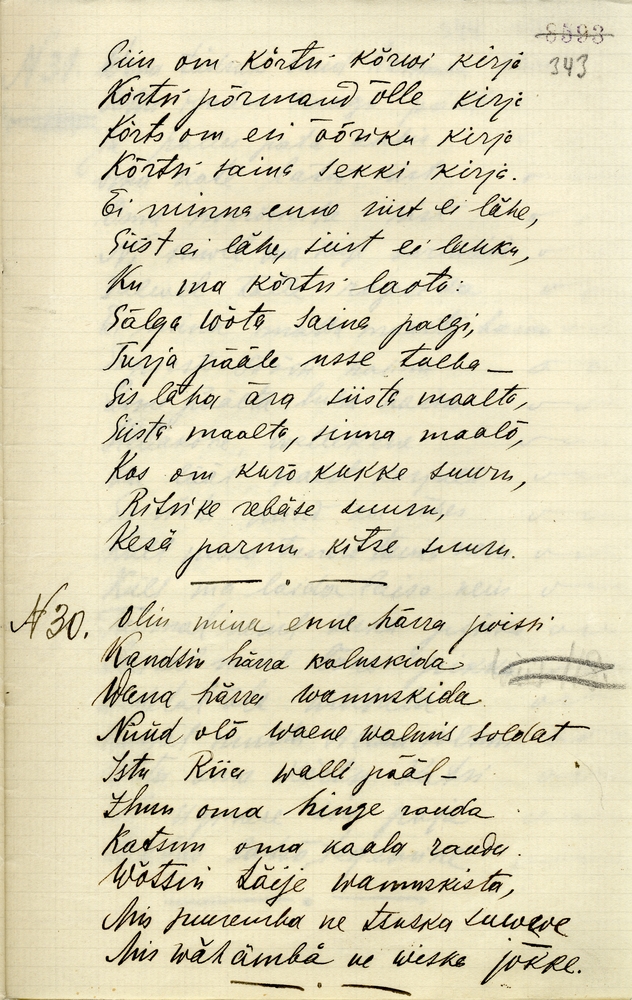 8593
343
Siin om kõrtsi kõrwi kirja
Kõrtsi põrmand õlle kirja
Kõrts om esi õõriku kirja
Kõrtsi saina sekki kirja.
Ei minna enne siist ei lähe,
Siist ei lähe, siist ei
Ku ma kõrtsi laota:
Sälga wõta saina palgi,
Turja pääle usse tulba —
Sis lähä ära siistä maalta,
Siistä maalta, sinna maalõ,
Kos om kurõ kukke suuru,
Ritsike rebäse suuru,
Kesä parmu kitse suuru.
N 30. Olin mina enne härra poissi
Kandsin härra kaluskida
Wana härra wammuskida
Nüüd olõ waene walmis soldat
Istu Riia walli pääl —
oma hinge rauda
Katsun oma kaala rauda.
Wõtsin täije wammuskista,
Mis suuremba ne
Mis wähämbä ne wiska jõkke.